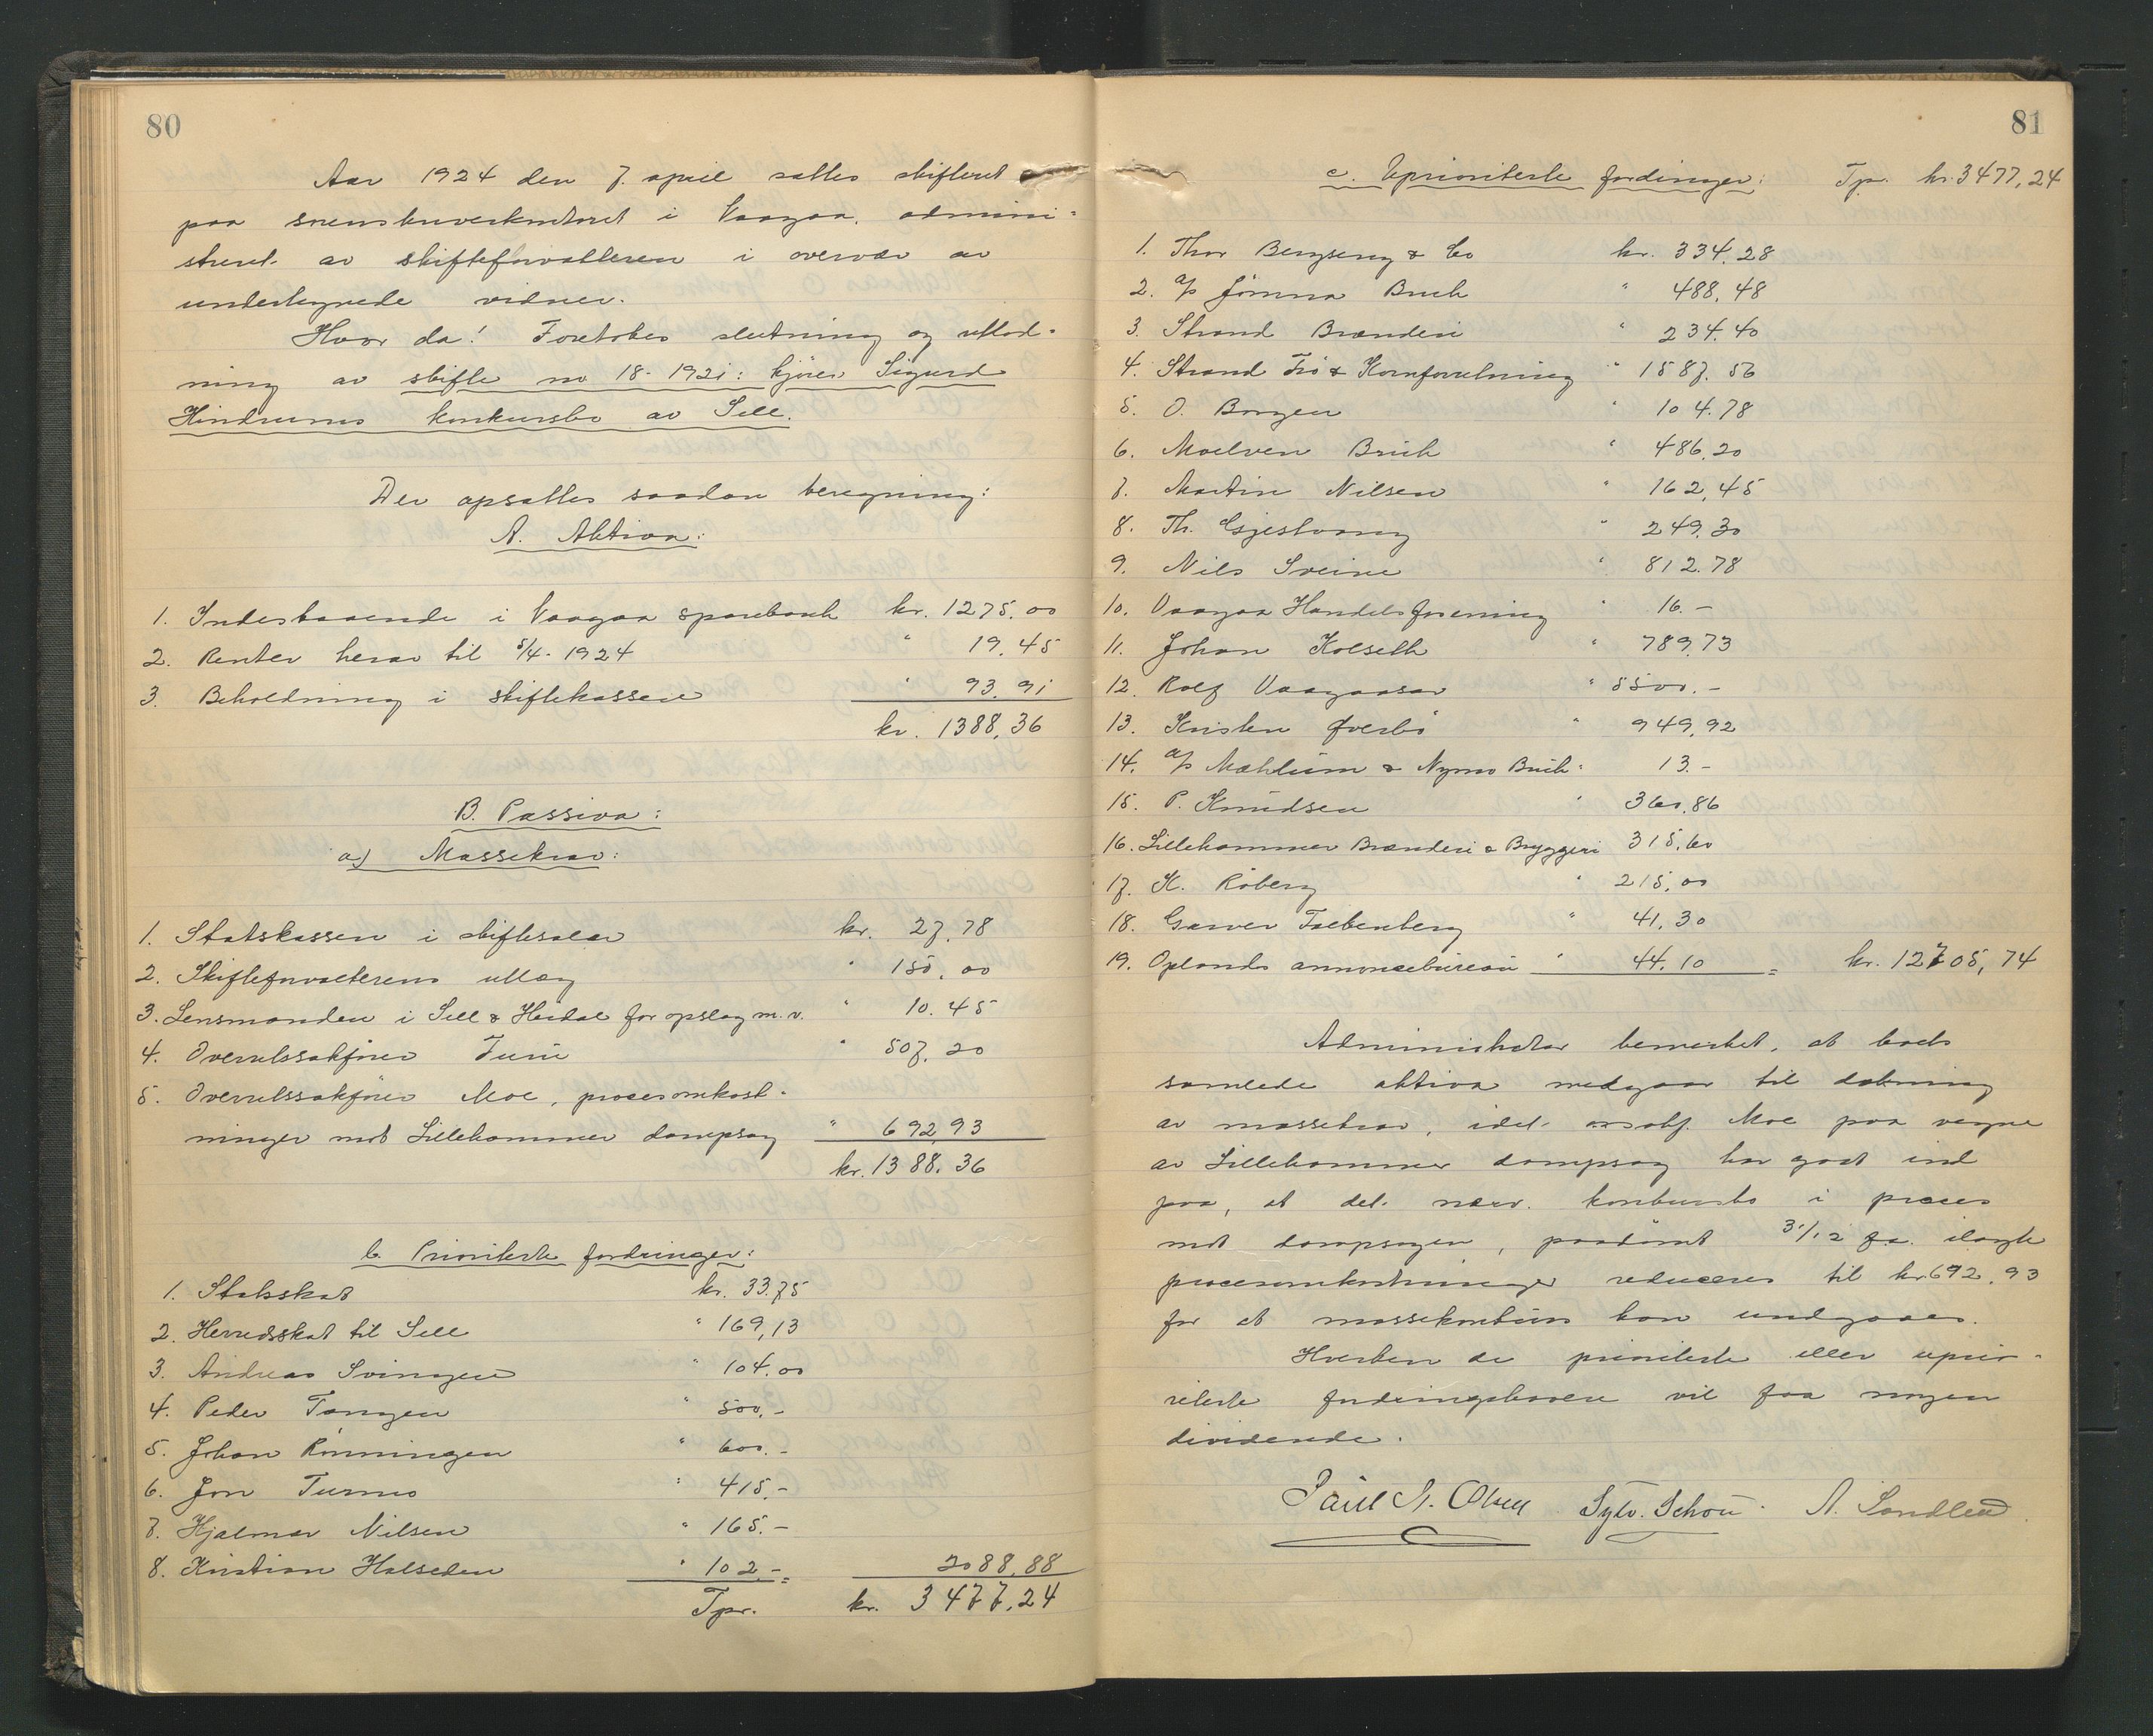 80
Aar 1924 den 7. april sattes skifteret
paa sorenskriverkontoret i Vaagaa, admini=
streret av skifteforvalteren i overvær av
undertegnede vidner.
Hvor da! Foretokes slutning og utlod-
ning av skifte no 18-1921: kjører Sigurd
Hindrums konkursbo av Sell.
Der opsattes saadan beregning:
A. Aktiva:
1. Indestaaende i Vaagaa sparebank kr. 1275,00
2. Renter herav til 5/4-1924 " 19.45
3. Beholdning i skiftekassen " 93.91
kr. 1388,36
B. Passiva:
a) Massekrav:
1. Statskassen i skiftesalær kr. 27.78
2. Skifteforvalterens utlæg " 150,00
3. Lensmanden i Sell & Heidal for opslag m.v. " 10.45
4. Overretssakfører Turii " 507.20
5. Overretssakfører Moe, procesomkost-
ninger mot Lillehammer dampsag " 692,93
kr. 1388.36
b. Prioriterte fordringer:
1. Statsskat kr. 33.75
2. Herredsskat til Sell " 169,13
3. Andreas Svingen " 104.00
4. Peder Tangen " 500,-
5. Johan Rønningen " 600.-
6. Jon Turmo " 415.-
7. Hjalmar Nilsen " 165.-
8. Kristian Halseden " 102.- = 2088.88
Tpr. kr. 3477,24
81
c. Uprioriterte fordinger: Tpr. kr. 3477,24
1. Thor Bergseng & Co kr. 334.28
2. A/s Jømna Bruk " 488,48
3. Strand Brænderi " 234.40
4. Strand Frö & Kornforretning " 1587.56
5. O. Borgen " 104.78
6. Moelven Bruk " 486,20
7. Martin Nilsen " 162,45
8. Th. Gjestvang " 249,30
9. Nils Sveine " 812.78
10. Vaagaa Handelsforening " 16.-
11. Johan Kolseth " 789,73
12. Rolf Vaagaasar " 5500.-
13. Kristen Øverbö " 949,92
14. A/s Mæhlum & Nymo Bruk " 13.-
15. P. Knudsen " 360.86
16. Lillehammer Brænderi & Bryggeri 315,60
17. K. Röberg " 215,00
18. Garver Falkenberg " 41.30
19. Oplands annoncebureau " 44.10 = kr. 12705,74
Administrator bemerket, at boets
samlede aktiva medgaar til dækning
av massekrav, idet orsakf. Moe paa vegne
av Lillehammer dampsag har gaat ind
paa, at det nærv. konkursbo i proces
mot dampsagen, paadömt 3/12 f.a. ilagte
procesomkostninger reduceres til kr 692.93
for at massekonkurs kan undgaaes.
Hverken de prioriterte eller uprio-
riterte fordringshavere vil faa nogen
dividende.
Paul N. Olsen Sylv. Schou A. Sandlend